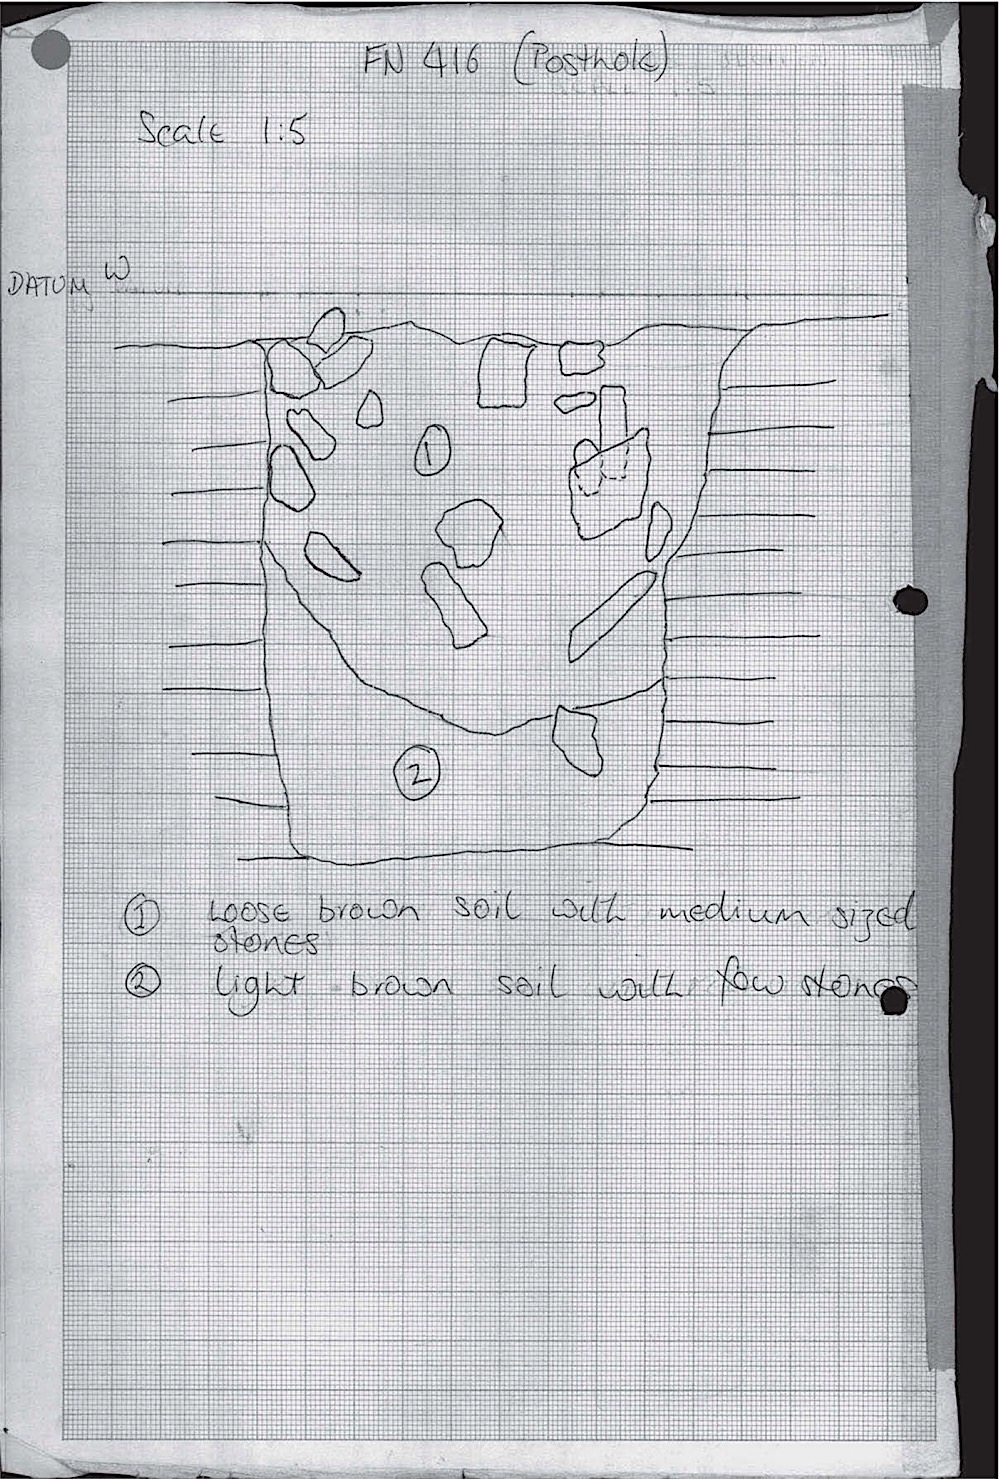 FN 416 (Posthole)
Scale 1:5
DATUM W
1
2
1 Loose brown soil with medium sized
stones
2 Light brown soil with few stones